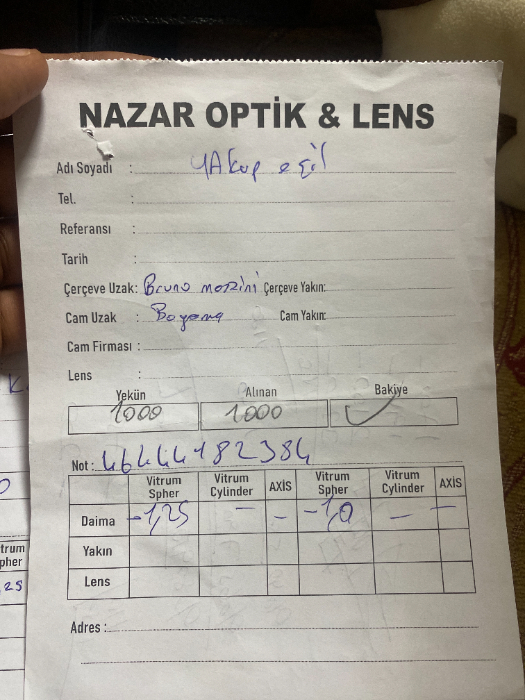 NAZAR OPTİK & LENS
Adı Soyadı : YAkup eğil
Tel. :
Referansı :
Tarih :
Çerçeve Uzak: Bruno mozini Çerçeve Yakın:
Cam Uzak : Boyama Cam Yakın:
Cam Firması :
Lens :
Yekün Alınan Bakiye
1000 1000 ✓
Not : 46444182384
Vitrum Spher Vitrum Cylinder AXİS Vitrum Spher Vitrum Cylinder AXİS
Daima -1,25 — — -1,0 — —
Yakın
Lens
Adres :
trum
pher
25